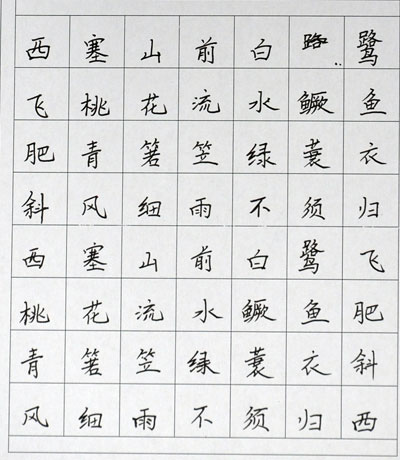 西塞山前白路鹭
飞桃花流水鳜鱼
肥青箬笠绿蓑衣
斜风细雨不须归
西塞山前白鹭飞
桃花流水鳜鱼肥
青箬笠绿蓑衣斜
风细雨不须归西